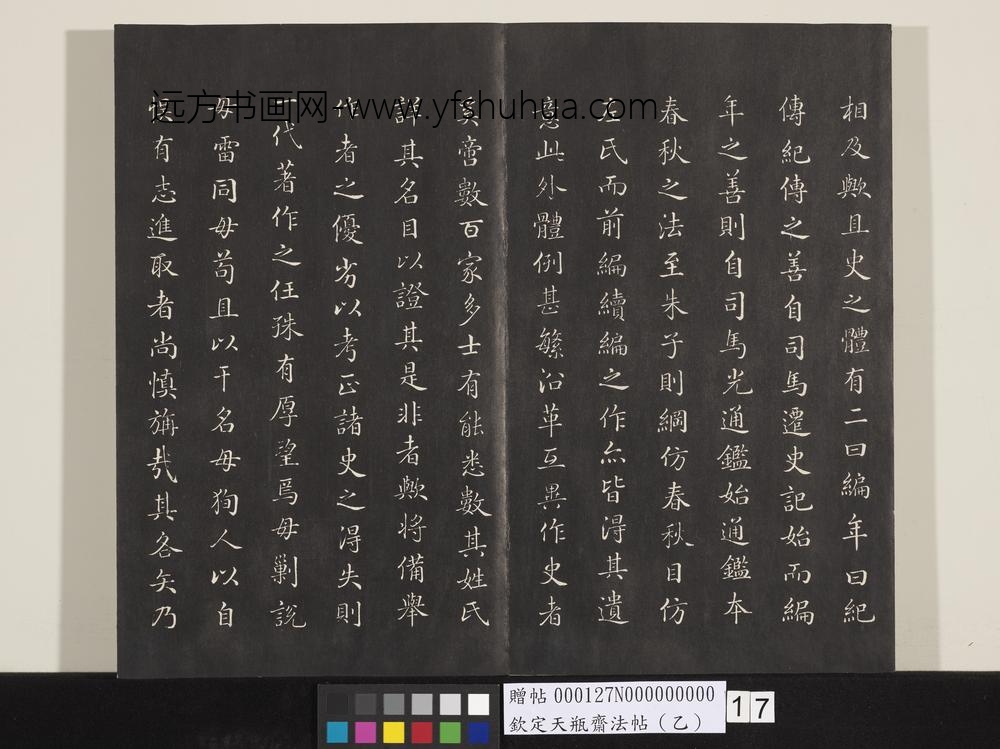 相及歟且史之體有二曰編年曰紀
傳紀傳之善自司馬遷史記始而編
年之善則自司馬光通鑑始通鑑本
春秋之法至朱子則綱仿春秋目仿
左氏而前編續編之作亦皆得其遺
意此外體例甚繁沿革互異作史者
奚啻數百家多士有能悉數其姓氏
詳其名目以證其是非者歟將備舉
作者之優劣以考正諸史之得失則
代著作之任殊有厚望焉毋剿說
毋雷同毋苟且以干名毋狥人以自
有志進取者尚慎旃哉其各矢乃
远方书画网-www.yfshuhua.com
贈帖 000127N000000000
欽定天瓶齋法帖(乙)
17